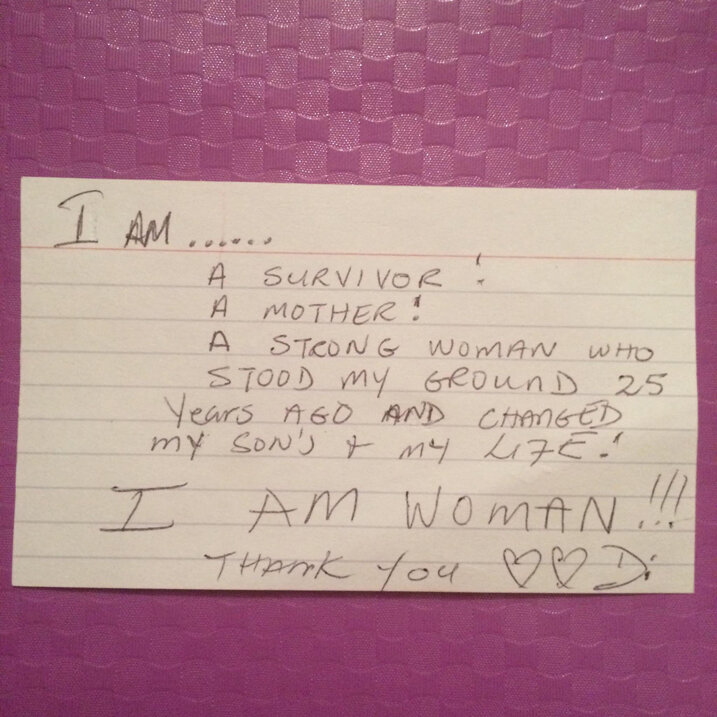 I AM ......
A SURVIVOR !
A MOTHER!
A STRONG WOMAN WHO
STOOD MY GROUND 25
Years AGO AND CHANGED
MY SON'S & MY LIFE!
I AM WOMAN!!!
THANK YOU ♡♡ Di